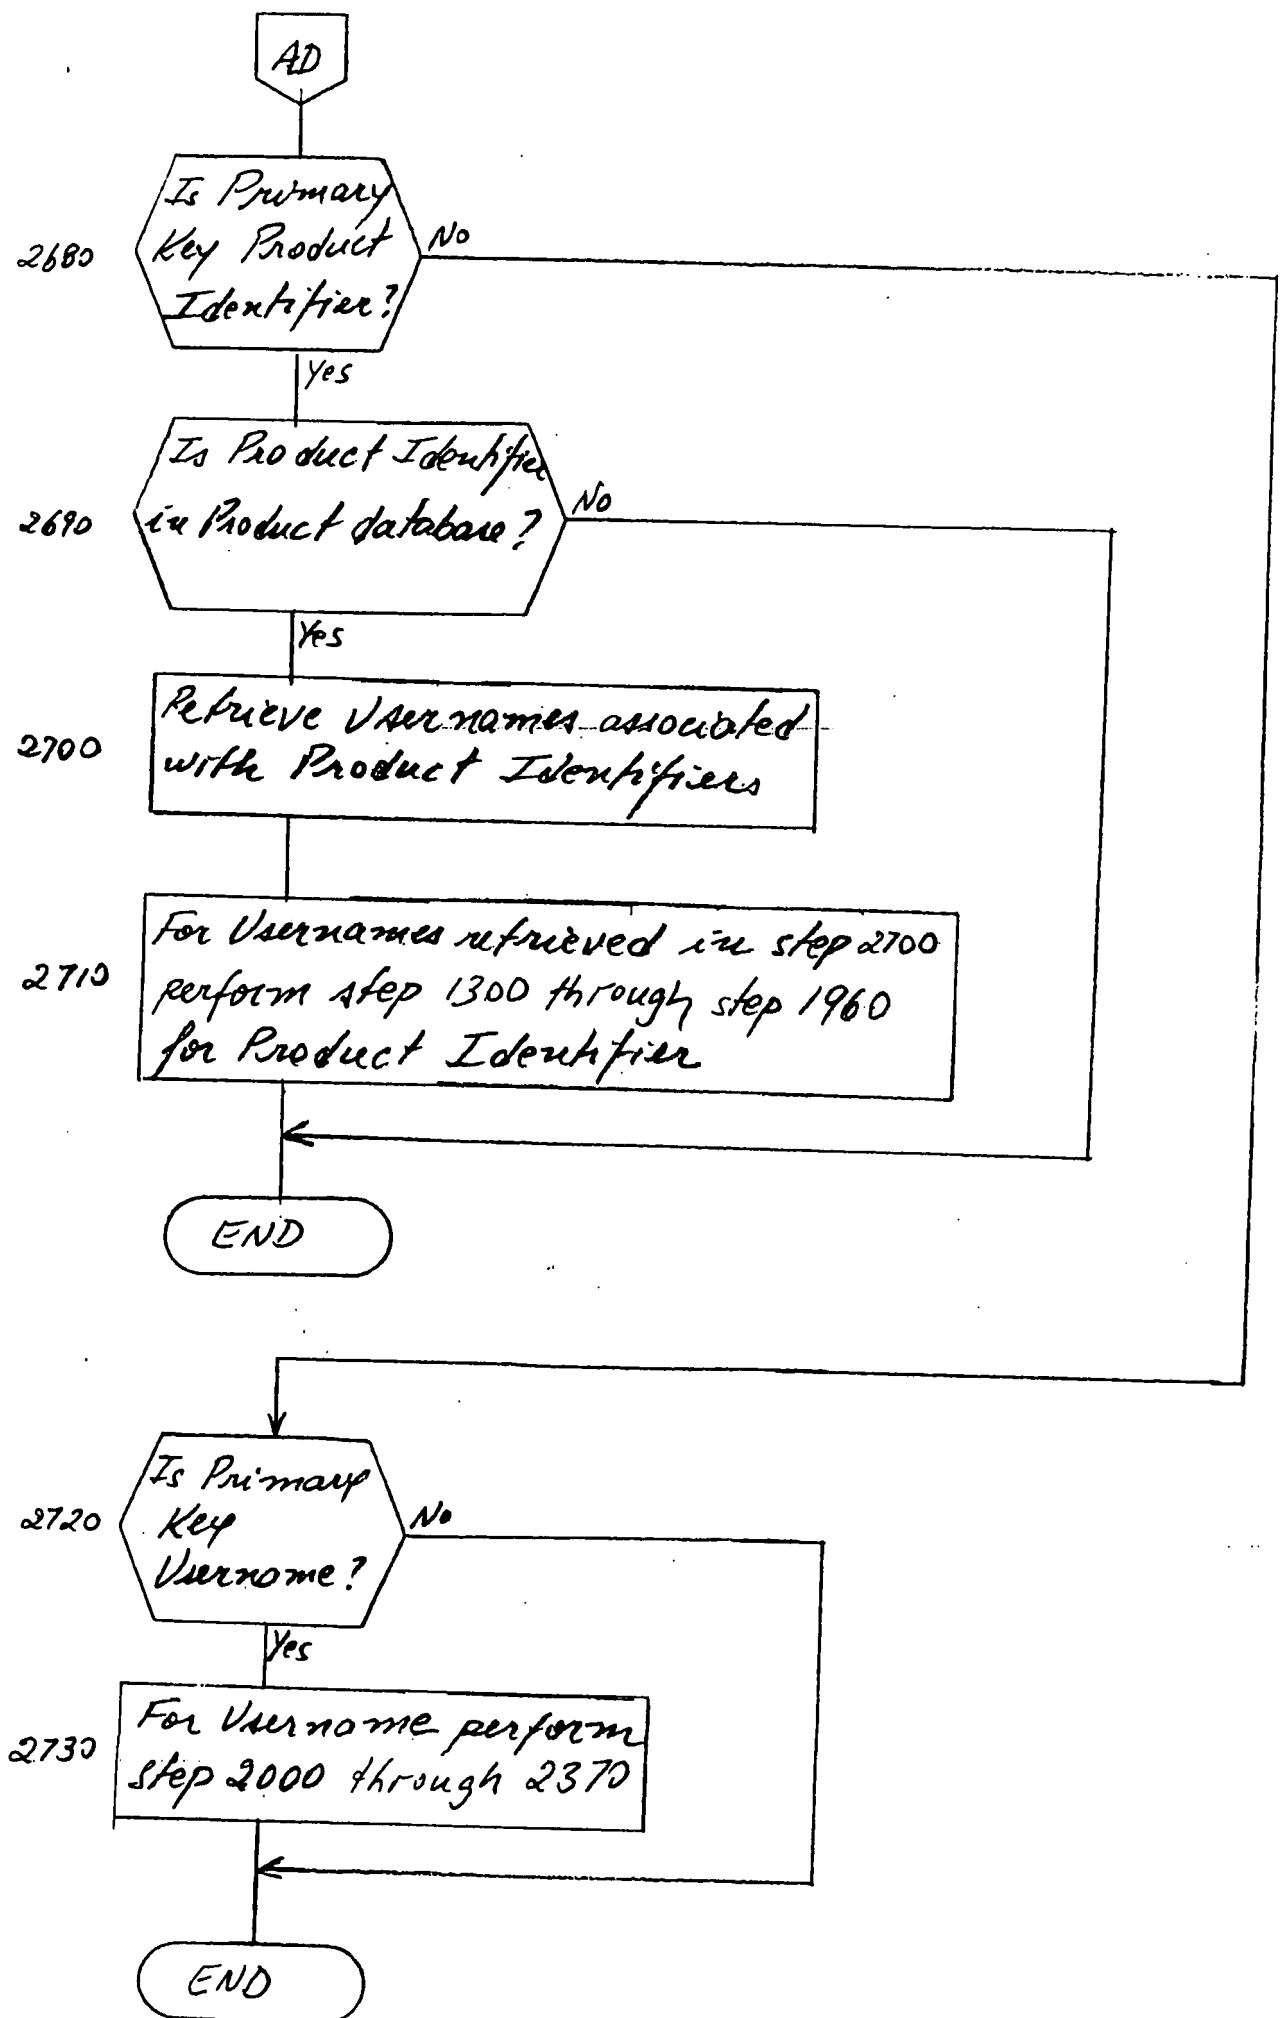 AD
Is Primary
Key Product
Identifier?
2680
No
Yes
Is Product Identifier
in Product database?
2690
No
Yes
Retrieve Usernames associated
with Product Identifiers
2700
For Usernames retrieved in step 2700
perform step 1300 through step 1960
for Product Identifier
2710
END
Is Primary
Key
Username?
2720
No
Yes
For Username perform
step 2000 through 2370
2730
END